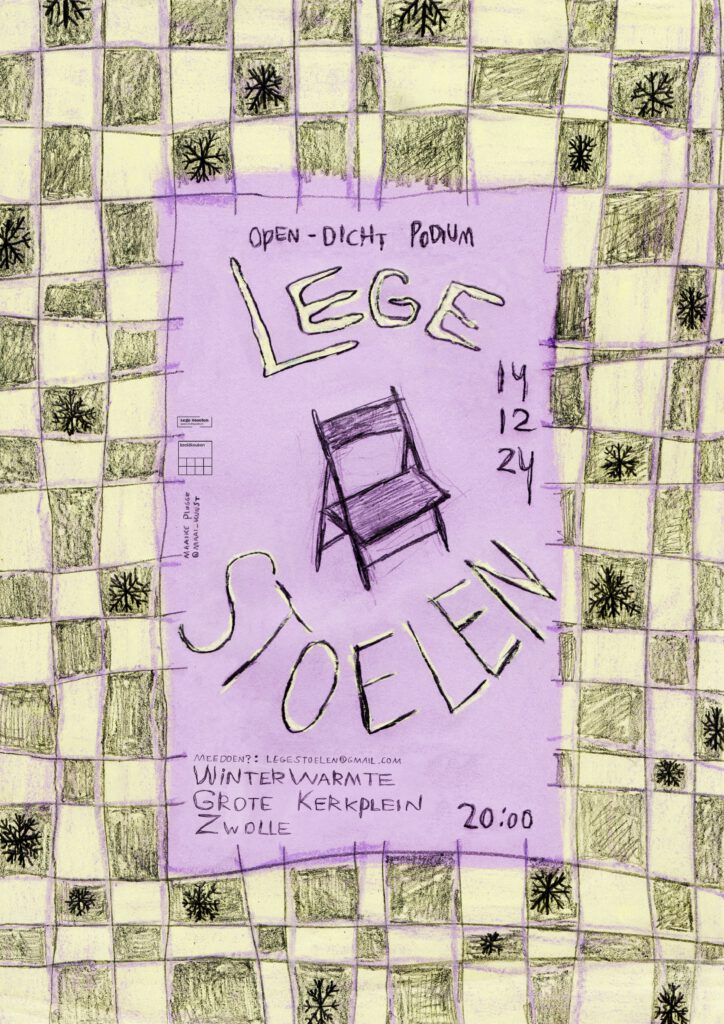 OPEN-DICHT PODIUM
LEGE
14
12
24
Lege Stoelen
beeldkeuken
MAAIKE PLUGGE
@MAAI_KUNST
STOELEN
MEEDOEN?: LEGESTOELEN@GMAIL.COM
WINTERWARMTE
GROTE KERKPLEIN
ZWOLLE
20:00